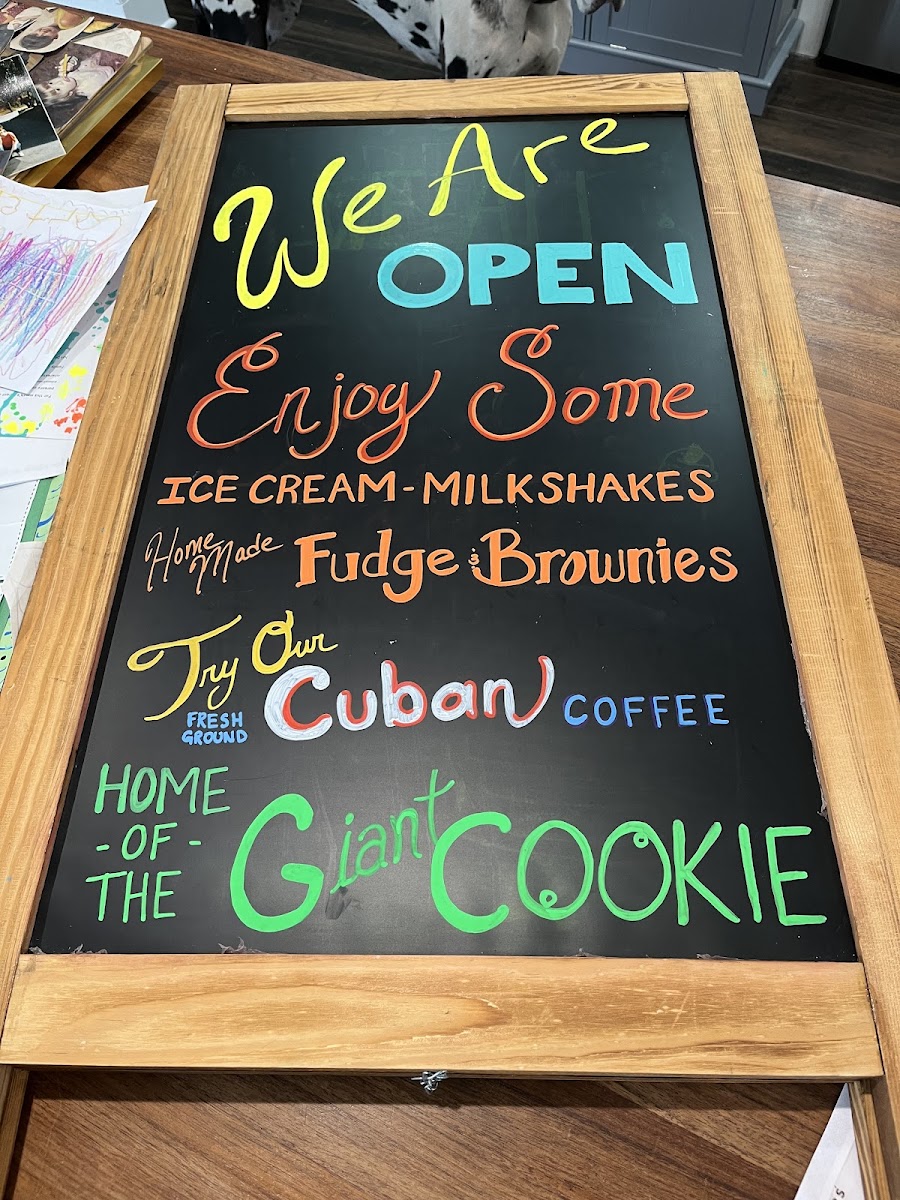 We Are
OPEN
Enjoy Some
ICE CREAM - MILKSHAKES
Home Made Fudge & Brownies
Try Our
FRESH GROUND Cuban COFFEE
HOME
- OF -
THE
Giant COOKIE